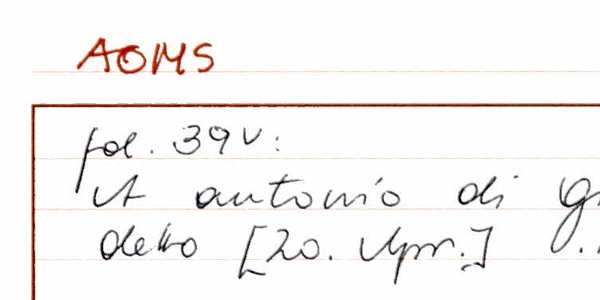 AOMS
fol. 39v:
A antonio di
detto [20. Apr.]